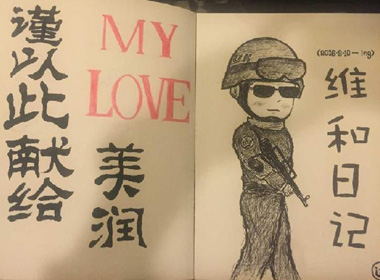 谨以此献给
MY
LOVE
美润
(2016-8-10—ing)
维和日记